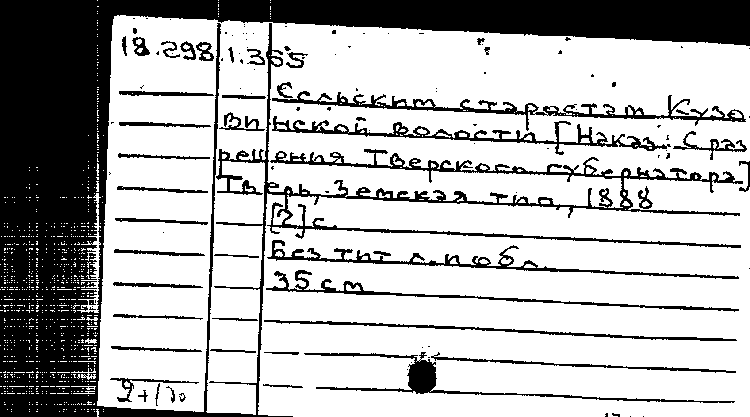 18.298.1.365
Сельским старостам Кузо
винской волости [Наказ: С раз
решения Тверского губернатора.]
Тверь, Земская тип., 1888
[2] с.
Без тит л. и обл.
35 cm